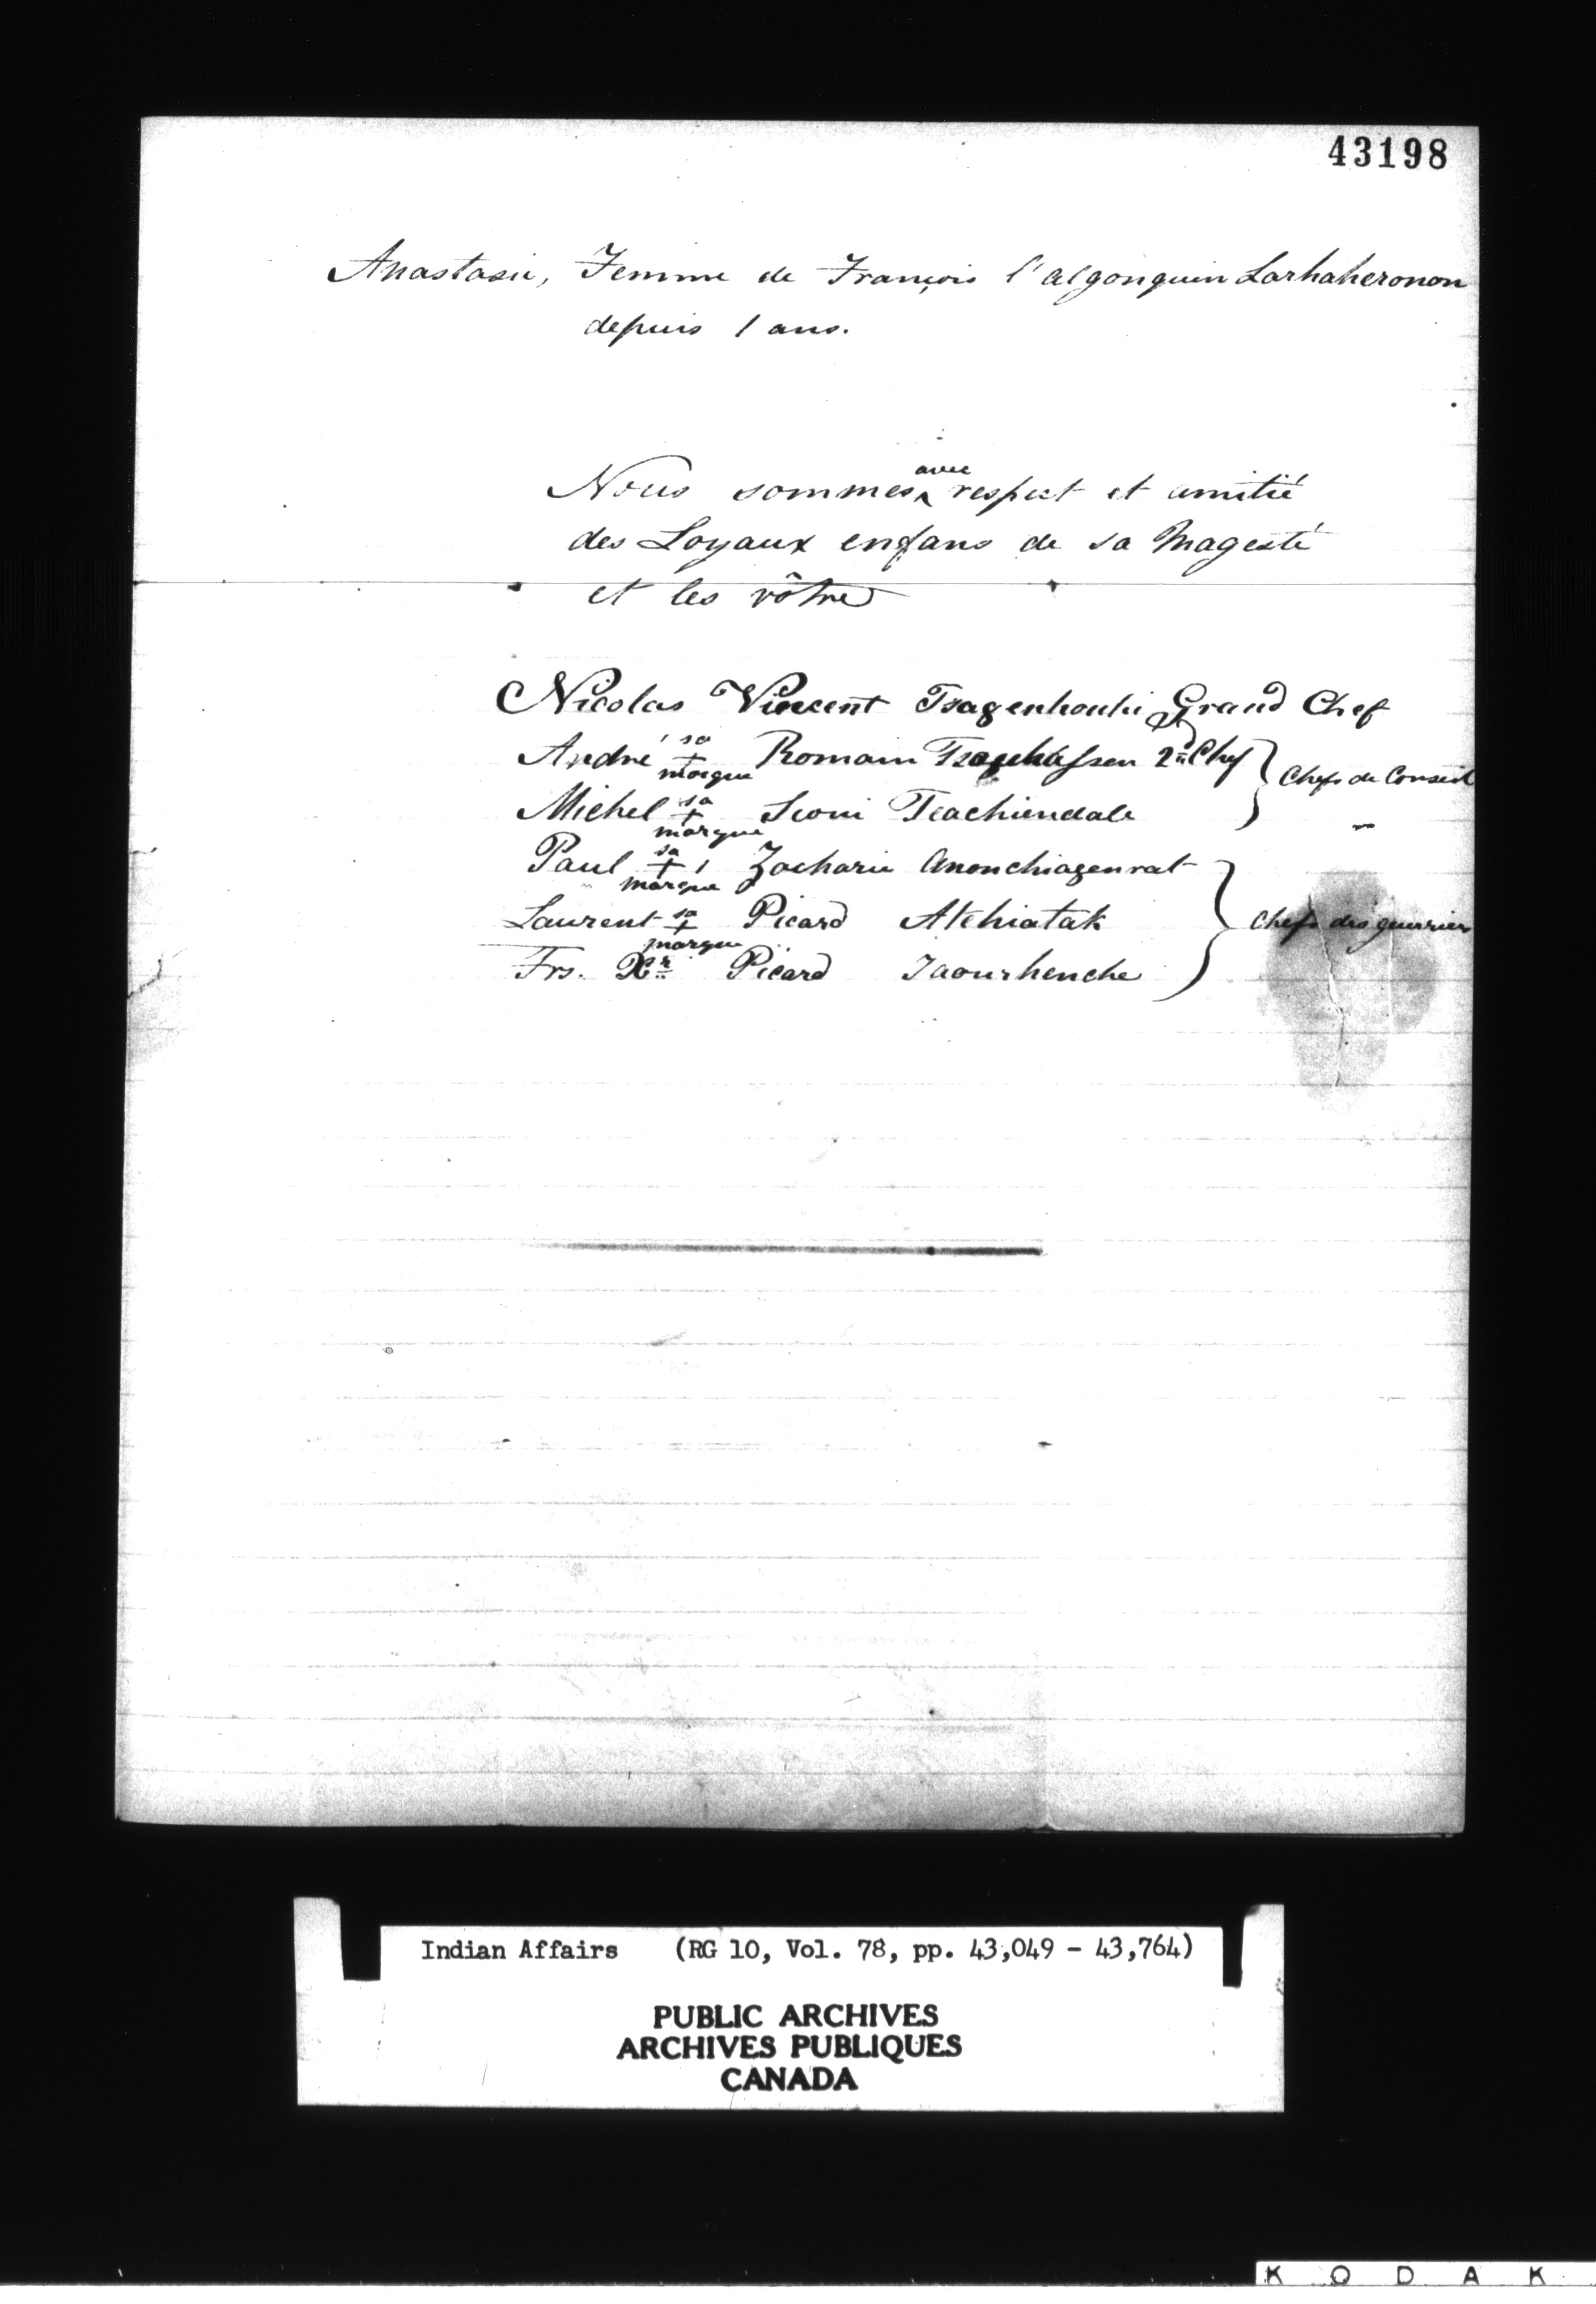 43198
Anastasie, Femme de François l'algonquin Larhaheronon
depuis 1 ans.
Nous sommes avec respect et amitié
des Loyaux enfans de sa Magesté
et les vôtre
Nicolas Vincent Tsagenhouhi Grand Chef
André sa + marque Romain Tsouhahissen 2nd Chef
Chefs de Conseil
Michel sa + marque Sioui Teachiendale
Paul sa + marque Zacharie Anonchiagenrat
Laurent sa + marque Picard Atehiatak
Chefs des guerrier
Frs. Xr Picard Taourhenche
Indian Affairs (RG 10, Vol. 78, pp. 43,049 - 43,764)
PUBLIC ARCHIVES
ARCHIVES PUBLIQUES
CANADA
KODAK